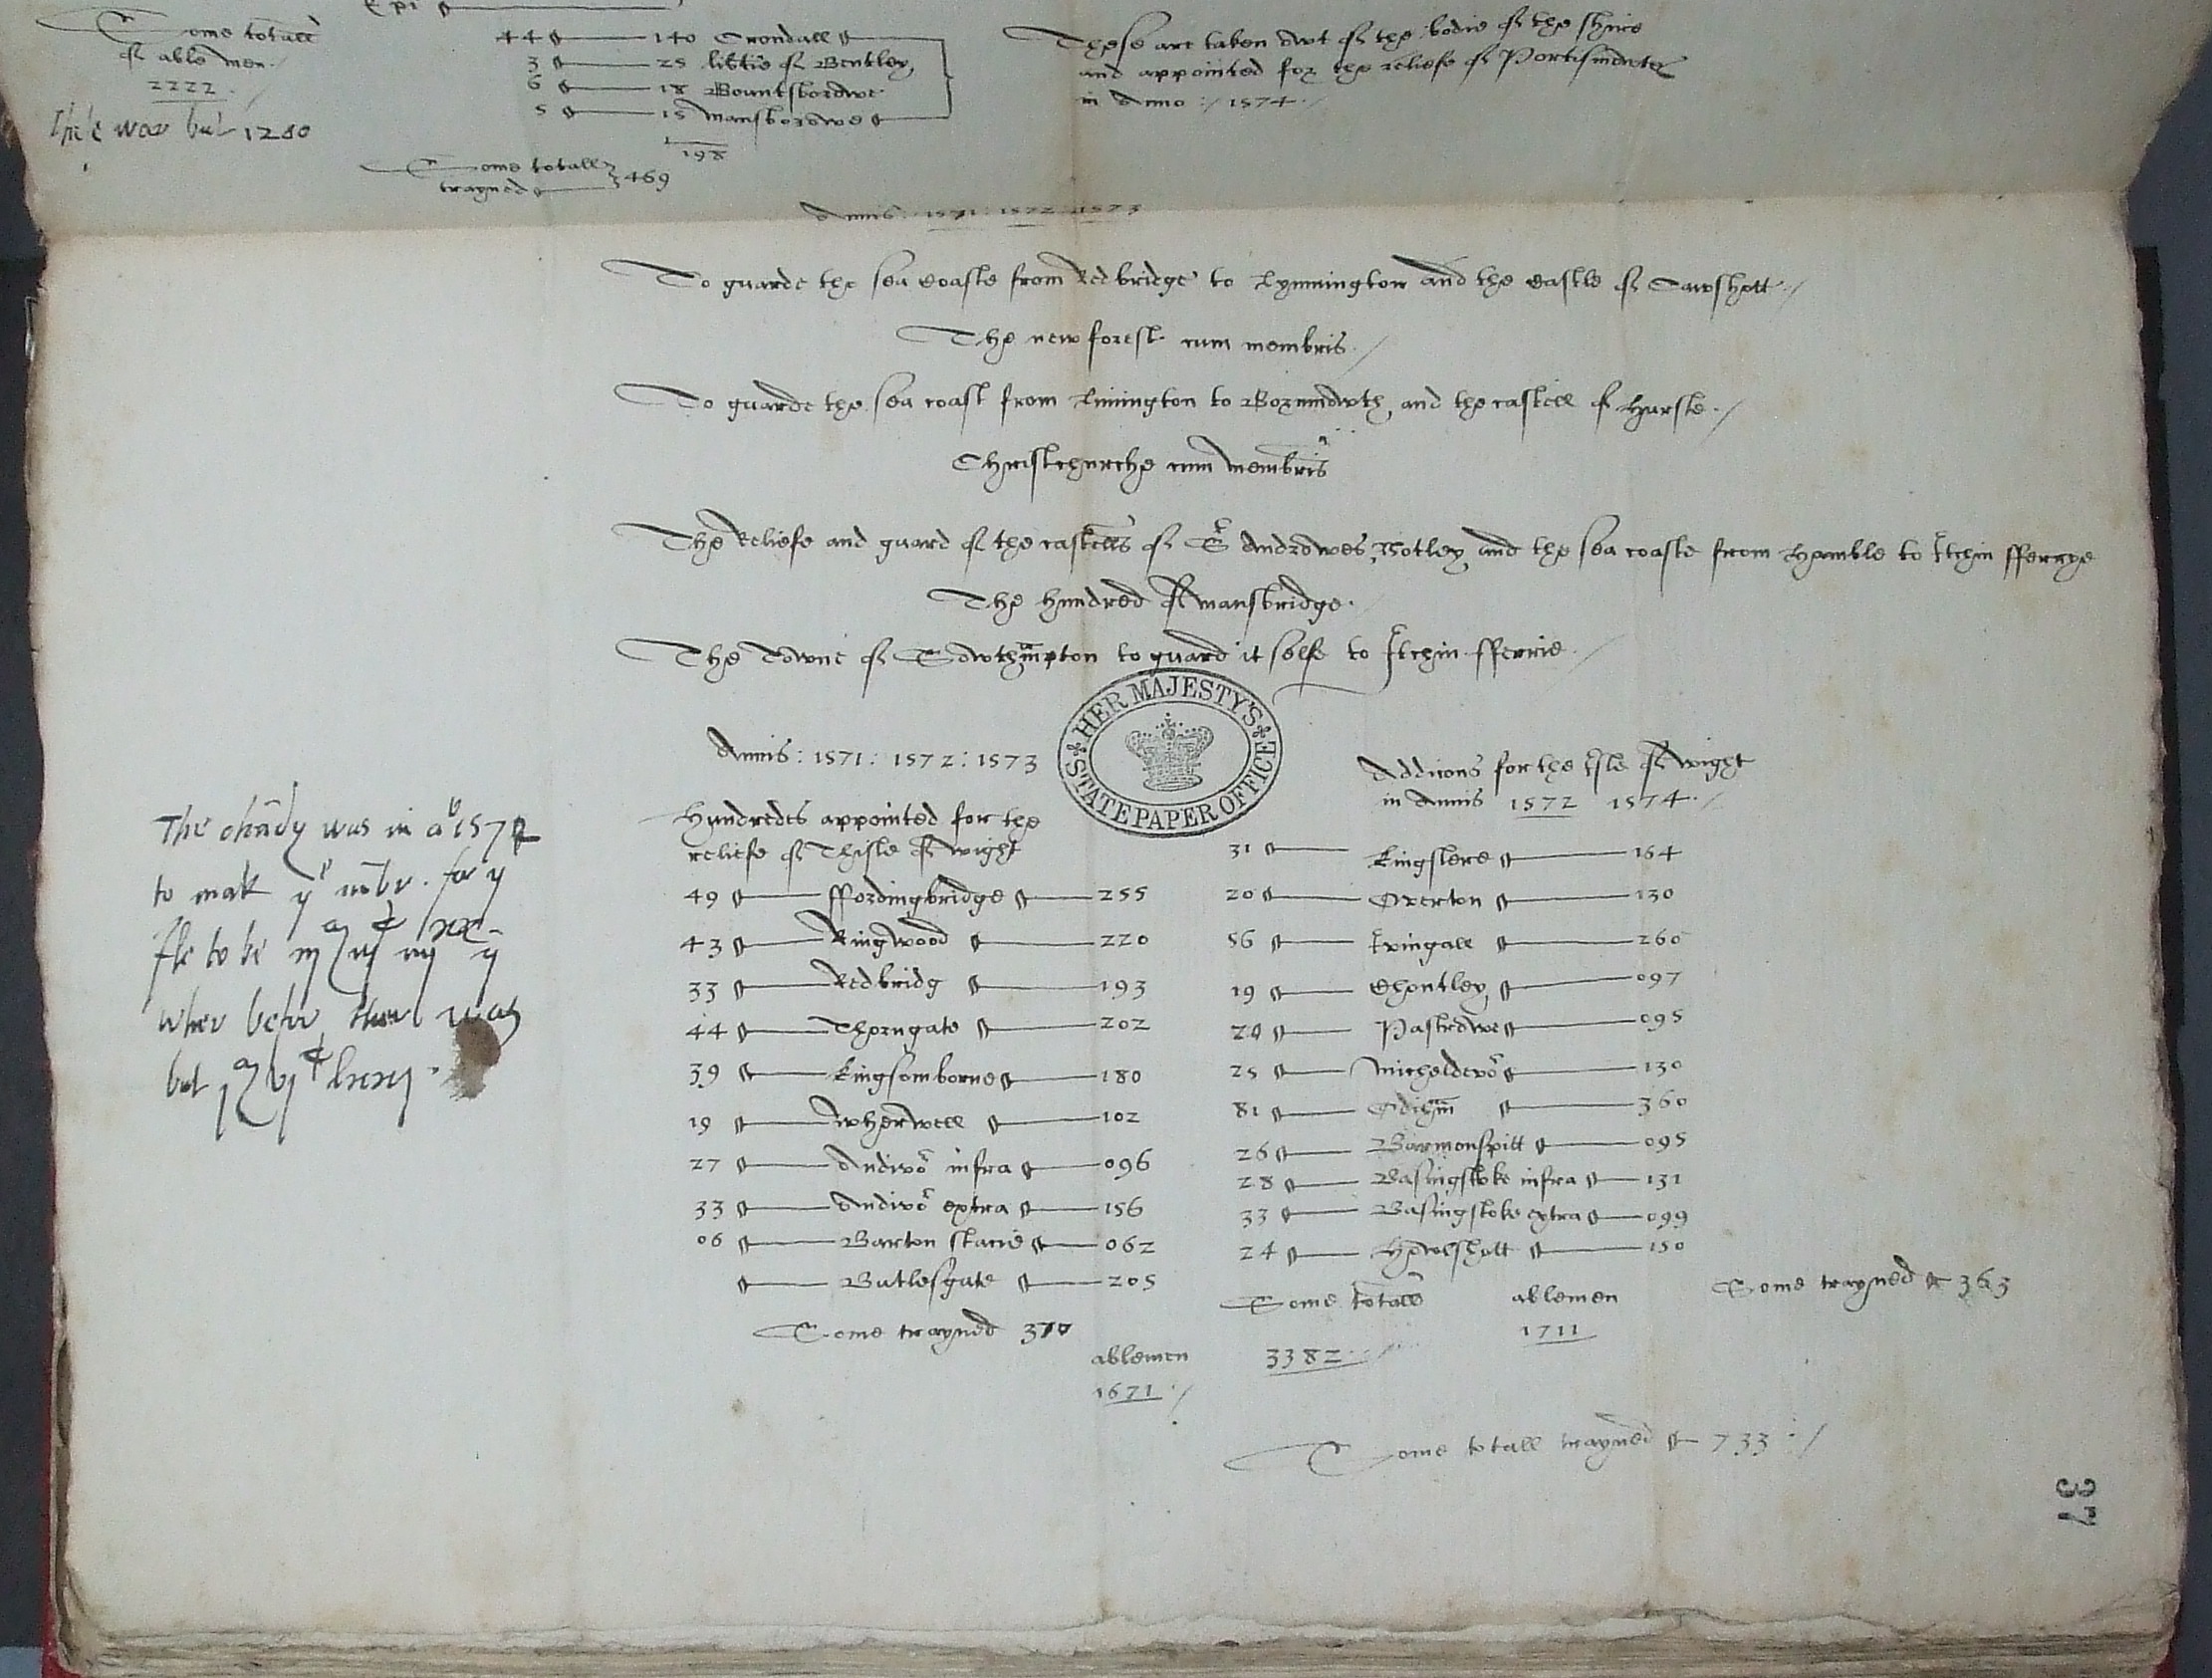 Some totall
of able men
2222
Ther was but 1280
44 140 Crondall
3 25 libtie of Bentley
6 18 Bountsborowe
5 15 Mansborowe
198
Some totall
trayned 469
These are taken owt of the bodie of the shire
and appointed for the reliefe of Portismowth
in Anno : 1574
Annis : 1571 : 1572 : 1573
To guarde the sea coaste from Redbridge to Lymmington and the castle of Cawshott
The new forest cum membris
To guarde the sea coast from Limington to Bornmowth, and the castell of Hurste
Christchurche cum membris
The Reliefe and guard of the castells of St Androwes, Notley, and the sea coaste from Hamble to Itchin fferrye
The hundred of Mansbridge
The Towne of Sowthampton to guard it selfe to Itchin fferrie
HER MAJESTY'S STATE PAPER OFFICE
Annis : 1571 : 1572 : 1573
Hundredes appointed for the
reliefe of Thisle of Wight
49 ffordingbridge 255
43 Ringwood 220
33 Redbridg 193
44 Thorngate 202
39 Kingsomborne 180
19 Wherwell 102
27 Andivor infra 096
33 Andivor extra 156
06 Barton stacie 062
Butlesgate 205
Some trayned 370
ablemen
1671
Addicons for the Isle of Wight
in Annis 1572 1574
31 Kingslere 164
20 Overton 130
56 Evingale 260
19 Chontley 097
20 Pastrowe 095
25 Micheldevor 130
81 Odiham 360
26 Barmonspitt 095
28 Basingstoke infra 131
33 Basingstoke extra 099
24 Hewishott 150
Some totall
3382
ablemen
1711
Some trayned 363
Some totall trayned 733
The was in ao 157
to mak ye for ye
Ile to be
wher befor ther was
but
37